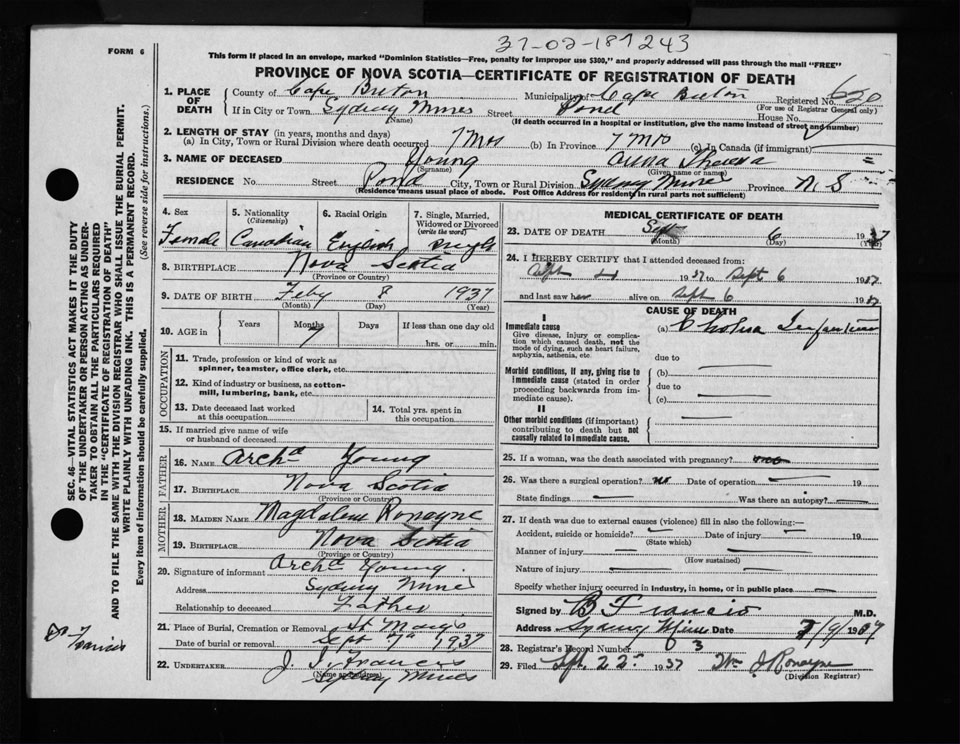 37-02-187243
FORM 6
This form if placed in an envelope, marked "Dominion Statistics—Free, penalty for improper use $300," and properly addressed will pass through the mail "FREE"
PROVINCE OF NOVA SCOTIA—CERTIFICATE OF REGISTRATION OF DEATH
1. PLACE OF DEATH
County of Cape Breton Municipality Cape Breton Registered No. 650
(For use of Registrar General only)
If in City or Town Sydney Mines Street Pond House No.
(Name) (If death occurred in a hospital or institution, give the name instead of street and number)
2. LENGTH OF STAY (in years, months and days)
(a) In City, Town or Rural Division where death occurred 7 Mos (b) In Province 7 Mos (c) In Canada (if immigrant)
3. NAME OF DECEASED Young Anna Theresa
(Surname) (Given name or names)
RESIDENCE No. Street Pond City, Town or Rural Division Sydney Mines Province N.S
(Residence means usual place of abode. Post Office Address for residents in rural parts not sufficient)
4. Sex
Female
5. Nationality
(Citizenship)
Canadian
6. Racial Origin
English
7. Single, Married, Widowed or Divorced
(write the word)
Single
8. BIRTHPLACE Nova Scotia
(Province or Country)
9. DATE OF BIRTH Feby 8 1937
(Month) (Day) (Year)
10. AGE in Years Months Days If less than one day
7 hrs. or min.
OCCUPATION
11. Trade, profession or kind of work as
spinner, teamster, office clerk, etc.
12. Kind of industry or business, as cotton-
mill, lumbering, bank, etc.
13. Date deceased last worked
at this occupation
14. Total yrs. spent in
this occupation
15. If married give name of wife
or husband of deceased
FATHER
16. NAME Archd Young
17. BIRTHPLACE Nova Scotia
(Province or Country)
MOTHER
18. MAIDEN NAME Magdalene Ronayne
19. BIRTHPLACE Nova Scotia
(Province or Country)
20. Signature of informant Archd Young.
Address Sydney Mines
Relationship to deceased Father
21. Place of Burial, Cremation or Removal
Date of burial or removal Sept 7th 1937
22. UNDERTAKER J. J. Francis
(Name and address)
Sydney Mines
MEDICAL CERTIFICATE OF DEATH
23. DATE OF DEATH Sept 6 1937
(Month) (Day) (Year)
24. I HEREBY CERTIFY that I attended deceased from:
Sept 1937 to Sept 6 1937
and last saw her alive on Sept 6 1937
CAUSE OF DEATH
I
Immediate cause
Give disease, injury or complica-
tion which caused death, not the
mode of dying, such as heart failure,
asphyxia, asthenia, etc.
(a) Cholera Infantum
due to
Morbid conditions, if any, giving rise to
immediate cause (stated in order
proceeding backwards from im-
mediate cause).
(b)
due to
(c)
II
Other morbid conditions (if important)
contributing to death but not
causally related to immediate cause.
25. If a woman, was the death associated with pregnancy?
26. Was there a surgical operation? No Date of operation 19
State findings Was there an autopsy?
27. If death was due to external causes (violence) fill in also the following:—
Accident, suicide or homicide? Date of injury 19
(State which)
Manner of injury
(How sustained)
Nature of injury
Specify whether injury occurred in industry, in home, or in public place
Signed by B Francis M.D.
Address Sydney Mines Date 7/9/1937
28. Registrar's Record Number 63
29. Filed Sept. 22 1937 Wm J. Ronayne
(Division Registrar)
SEC. 46—VITAL STATISTICS ACT MAKES IT THE DUTY
OF THE UNDERTAKER OR PERSON ACTING AS UNDER-
TAKER TO OBTAIN ALL THE PARTICULARS REQUIRED
IN THE "CERTIFICATE OF REGISTRATION OF DEATH"
AND TO FILE THE SAME WITH THE DIVISION REGISTRAR WHO SHALL ISSUE THE BURIAL PERMIT.
WRITE PLAINLY WITH UNFADING INK. THIS IS A PERMANENT RECORD.
Every item of information should be carefully supplied. (See reverse side for instructions.)
Dr Francis